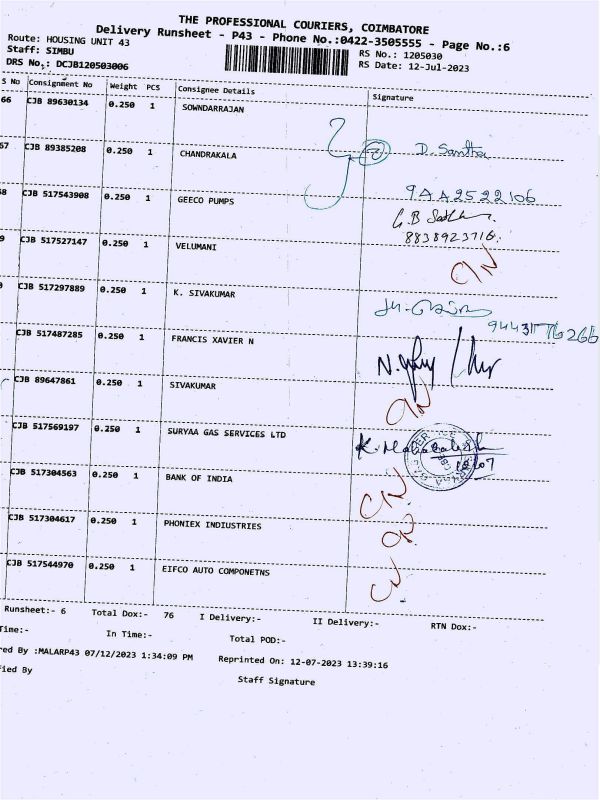 THE PROFESSIONAL COURIERS, COIMBATORE
Delivery Runsheet - P43 - Phone No.:0422-3505555 - Page No.:6
Route: HOUSING UNIT 43
RS No.: 1205030
Staff: SIMBU
RS Date: 12-Jul-2023
DRS No.: DCJB120503006
S No Consignment No Weight PCS Consignee Details Signature
66 CJB 89630134 0.250 1 SOWNDARRAJAN
67 CJB 89385208 0.250 1 CHANDRAKALA
8 CJB 517543908 0.250 1 GEECO PUMPS 9AA2522106
8838923716.
9 CJB 517527147 0.250 1 VELUMANI
CJB 517297889 0.250 1 K. SIVAKUMAR
9443176266
CJB 517487285 0.250 1 FRANCIS XAVIER N
CJB 89647861 0.250 1 SIVAKUMAR
CJB 517569197 0.250 1 SURYAA GAS SERVICES LTD
CJB 517304563 0.250 1 BANK OF INDIA
CJB 517304617 0.250 1 PHONIEX INDIUSTRIES
CJB 517544970 0.250 1 EIFCO AUTO COMPONETNS
Runsheet:- 6 Total Dox:- 76 I Delivery:- II Delivery:- RTN Dox:-
Time:- In Time:- Total POD:-
red By :MALARP43 07/12/2023 1:34:09 PM Reprinted On: 12-07-2023 13:39:16
fied By Staff Signature